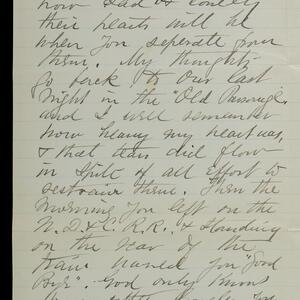 how sad & lonely
their hearts will be
when you seperate from
them. My thoughts
go back to our last
night in the "Old Parsonage"
and I well remember
how heavy my heart was,
& that tears did flow
in spite of all effort to
restrain them. Then the
morning you left on the
N. D. & C. R.R. & standing
on the rear of the
train waved you "Good
Bye". God only knows